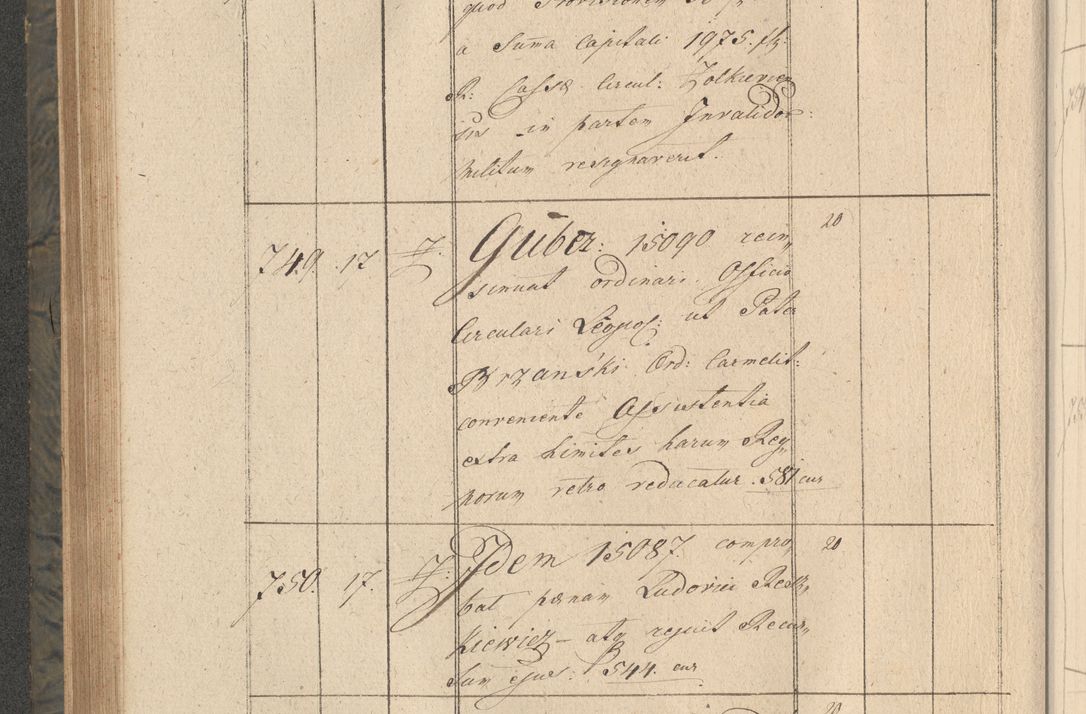 quod
a Suma Capitali 1975. flr:
R: Cassæ Circul: Zolkievien
sis in partem Invalidor:
militum resignaverit.
749. 17 Guber: 15090 rein„ 20
sinuat ordinari. Officio
Circulari Leopol: ut Pater
Brzański Ord: Carmelit:
conveniente Assistentia
extra Limites harum Reg„
norum retro reducatur. 581 cur
750. 17. Idem 15087. compro„ 20
bat pænam Ludovici
Kiewicz – atq rejicit Recur„
sum ejus. 544. cur
20